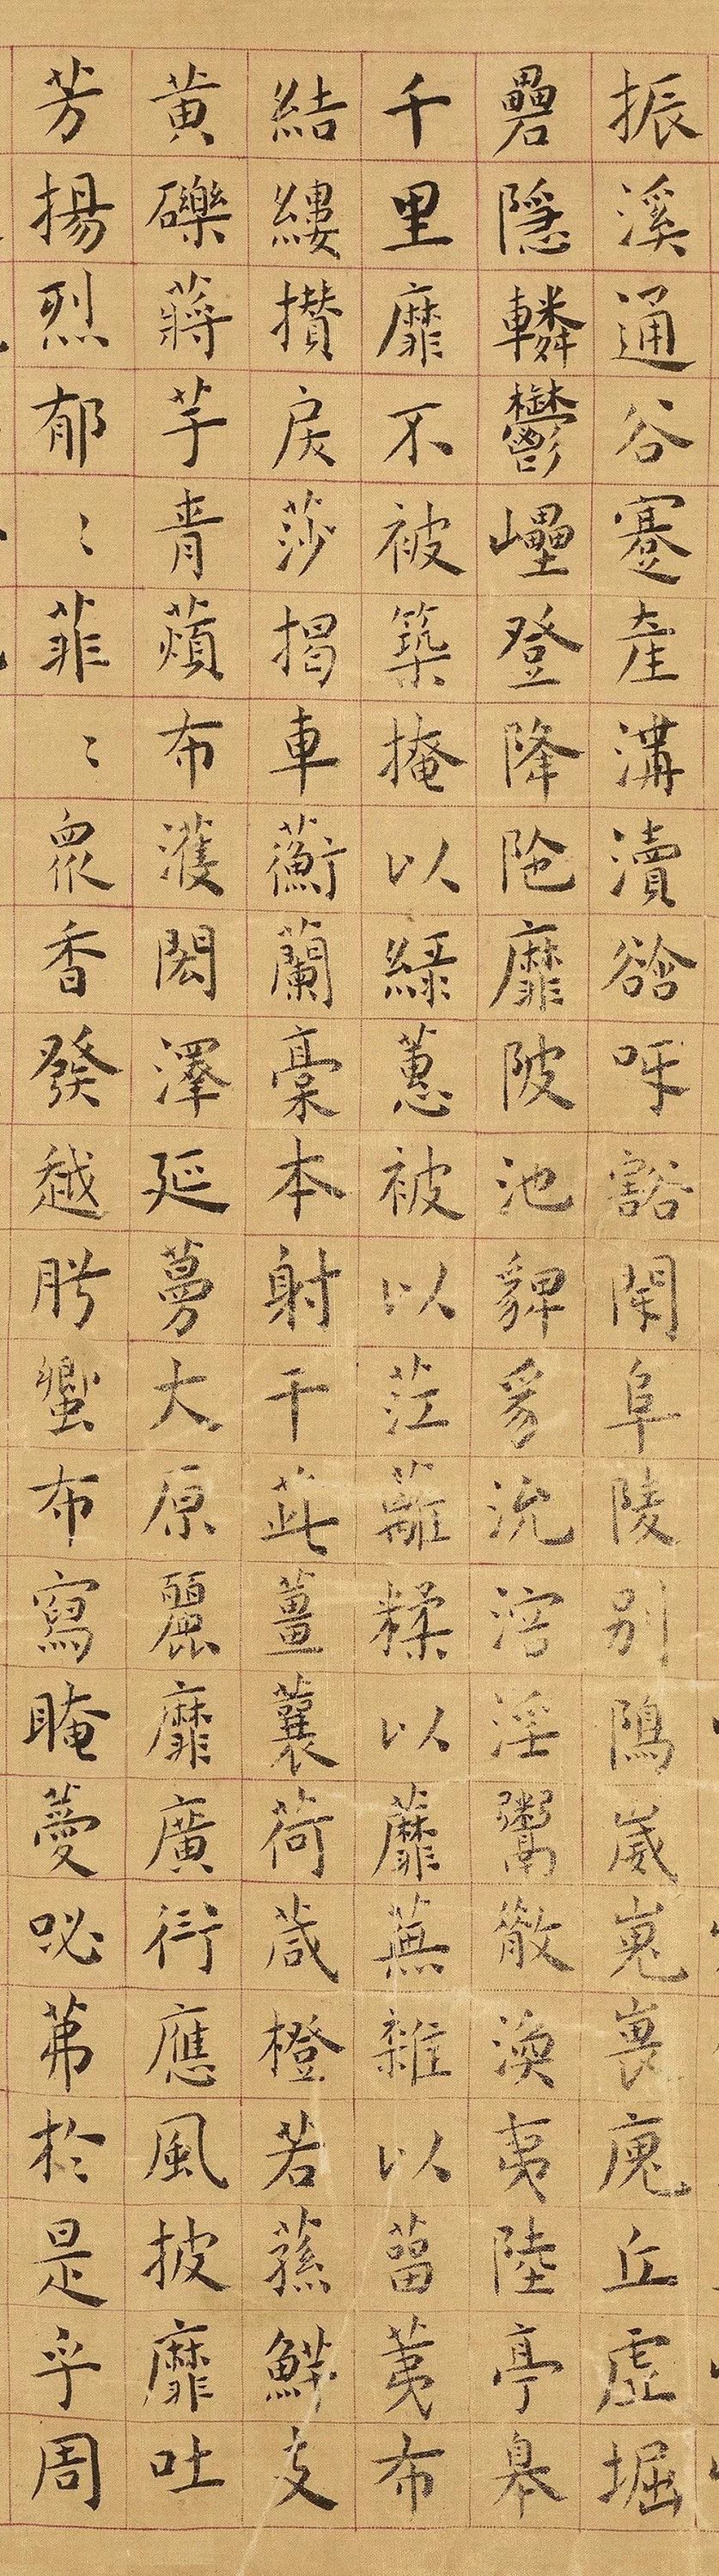 振溪通谷蹇產溝瀆谽呀豁閕阜陵别隝崴嵬㠢廆丘虛堀
礨隱轔鬱㠥登降阤靡陂池貏豸沇溶淫鬻散渙夷陸亭皋
千里靡不被築掩以緑蕙被以茳蘺糅以蘼蕪雜以菖荑布
結縷攢戾莎揭車蘅蘭槀本射干茈薑蘘荷葴橙若蓀鮮支
黃礫蔣芧青薠布濩閎澤延蔓大原麗靡廣衍應風披靡吐
芳揚烈郁〻菲〻眾香發越肸蠁布寫晻薆咇茀於是乎周